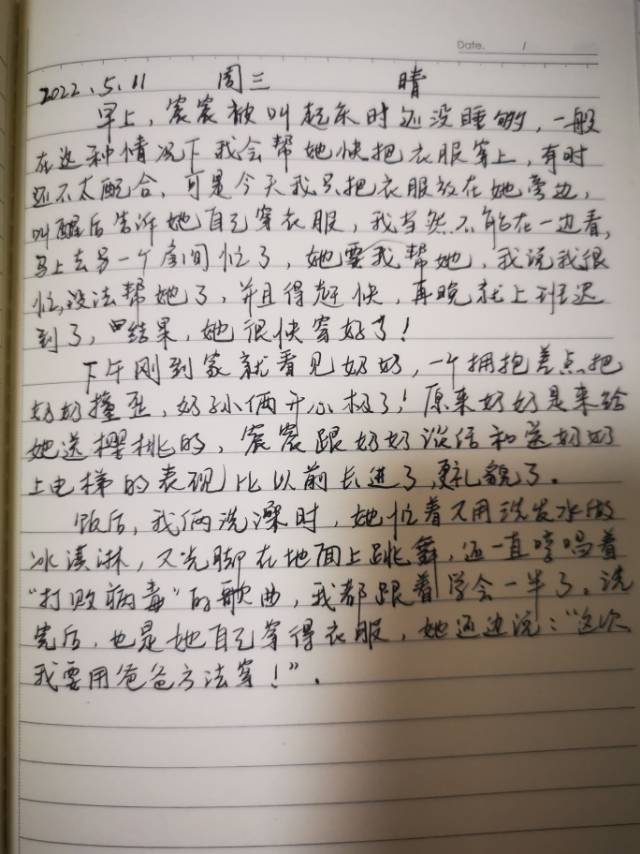 Date. /
2022.5.11 周三 晴
早上，宸宸被叫起床时还没睡够，一般
在这种情况下我会帮她快把衣服穿上，有时
还不太配合，可是今天我只把衣服放在她旁边，
叫醒后告诉她自己穿衣服，我当然不能在一边看，
马上去另一个房间忙了，她要我帮她，我说我很
忙，没法帮她了，并且得赶快，再晚就上班迟
到了，结果，她很快穿好了！
下午刚到家就看见奶奶，一个拥抱差点把
奶奶撞歪，奶孙俩开心极了！原来奶奶是来给
她送樱桃的，宸宸跟奶奶谈话和送奶奶
上电梯的表现比以前长进了，更礼貌了。
饭后，我俩洗澡时，她忙着又用洗发水做
冰淇淋，又光脚在地面上跳舞，还一直哼唱着
“打败病毒”的歌曲，我都跟着学会一半了。洗
完后，也是她自己穿得衣服，她还边说：“这次
我要用爸爸方法穿！”.